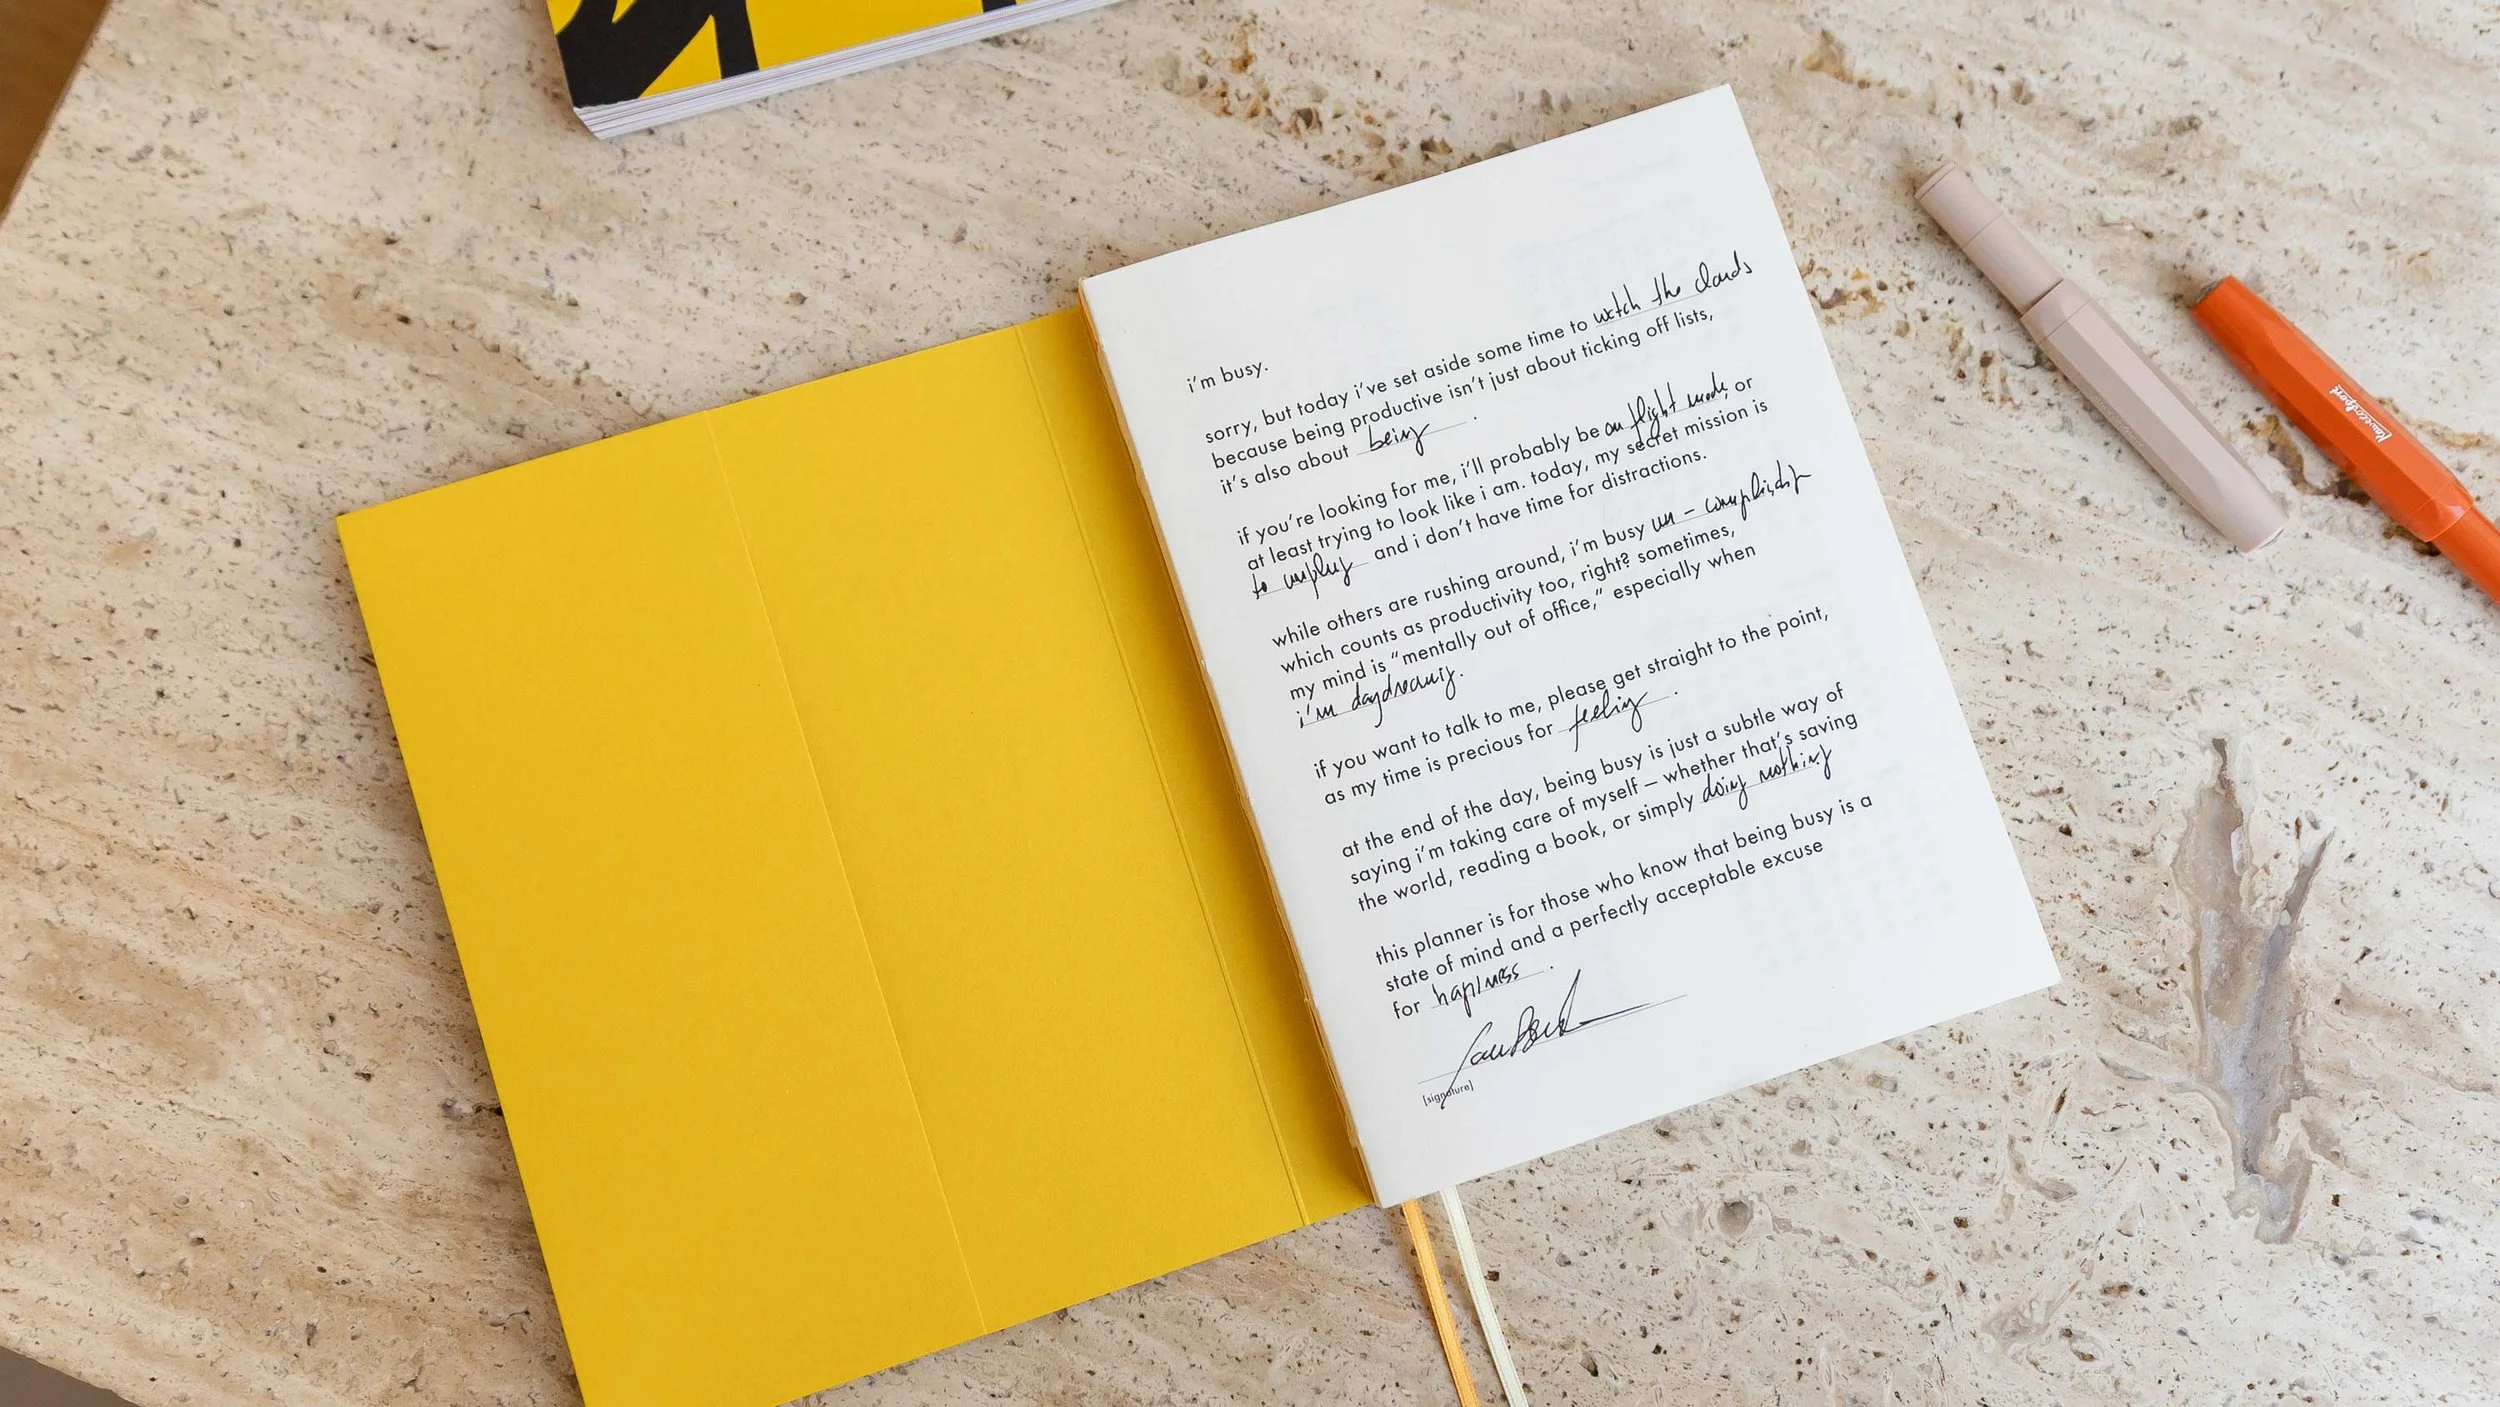 i'm busy.
sorry, but today i've set aside some time to watch the clouds
because being productive isn't just about ticking off lists,
it's also about being.
if you're looking for me, i'll probably be on flight mode, or
at least trying to look like i am. today, my secret mission is
to unplug and i don't have time for distractions.
while others are rushing around, i'm busy un-complicated
which counts as productivity too, right? sometimes,
my mind is "mentally out of office," especially when
i'm daydreaming.
if you want to talk to me, please get straight to the point,
as my time is precious for feeling.
at the end of the day, being busy is just a subtle way of
saying i'm taking care of myself – whether that's saving
the world, reading a book, or simply doing nothing
this planner is for those who know that being busy is a
state of mind and a perfectly acceptable excuse
for happiness.
[signature]
Kaweco Sport